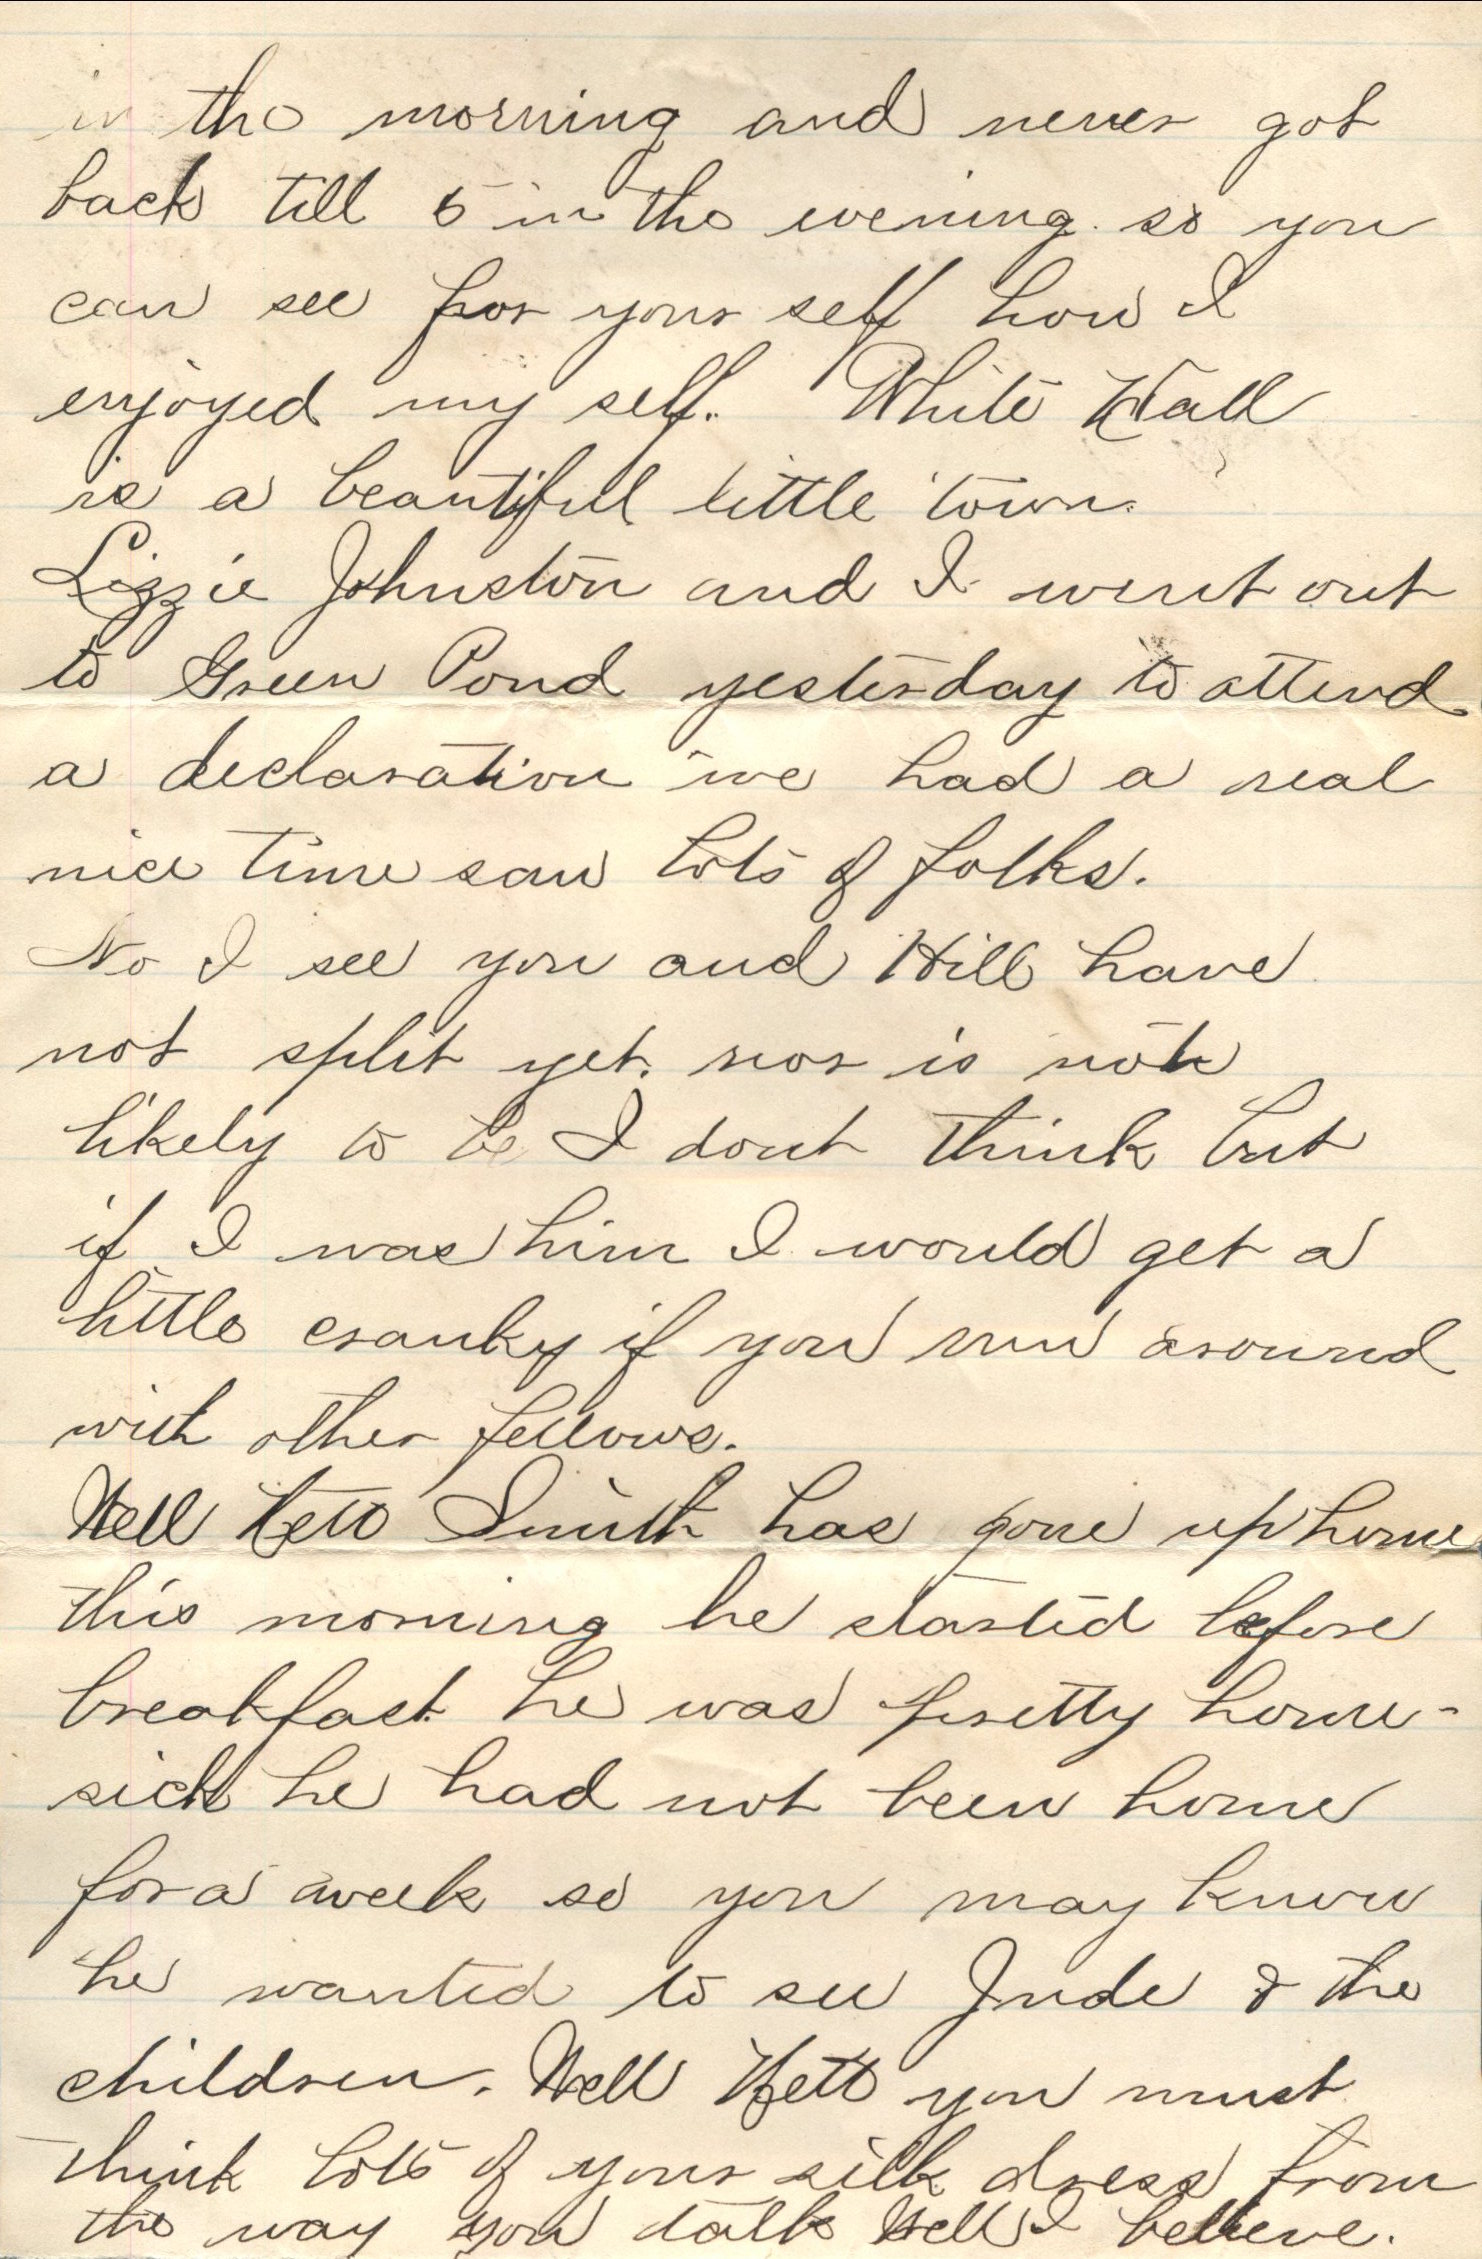 in the morning and never got
back till 5 in the evening. so you
can see for your self how I
enjoyed my self. White Hall
is a beautiful little town.
Lizzie Johnston and I went out
to Green Pond yesterday to attend
a declaration we had a real
nice time saw lots of folks.
No I see you and Hill have
not split yet. nor is not
likely to be I dont think but
if I was him I would get a
little cranky if you run around
with other fellows.
Well Hett Smith has gone up home
this morning he started before
breakfast he was pretty home-
sick he had not been home
for a week so you may know
he wanted to see Jude & the
children. Well Hett you must
think lots of your silk dress from
the way you talk Well I believe.